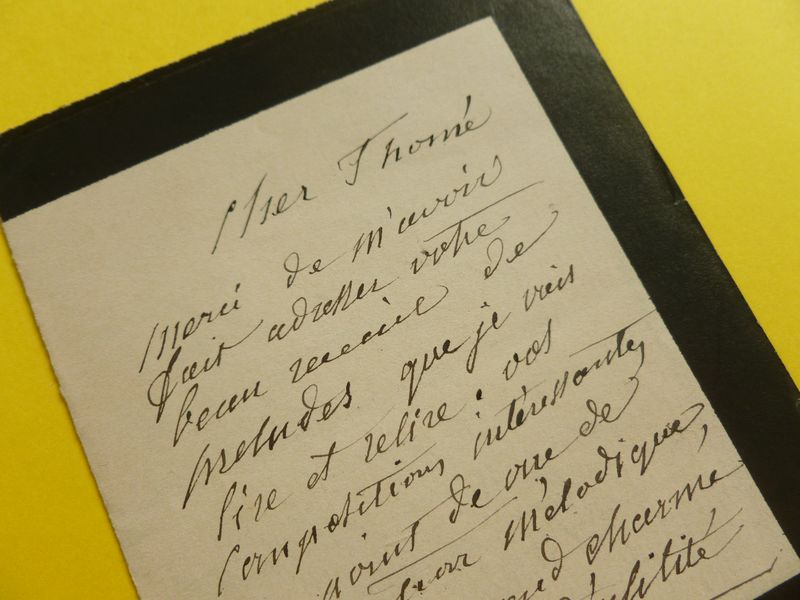 Cher Thomé
Merci de m'avoir
fait adresser votre
beau recueil de
preludes que je vais
lire et relire : vos
compositions intéressantes,
point de vue de
mélodique,
charme